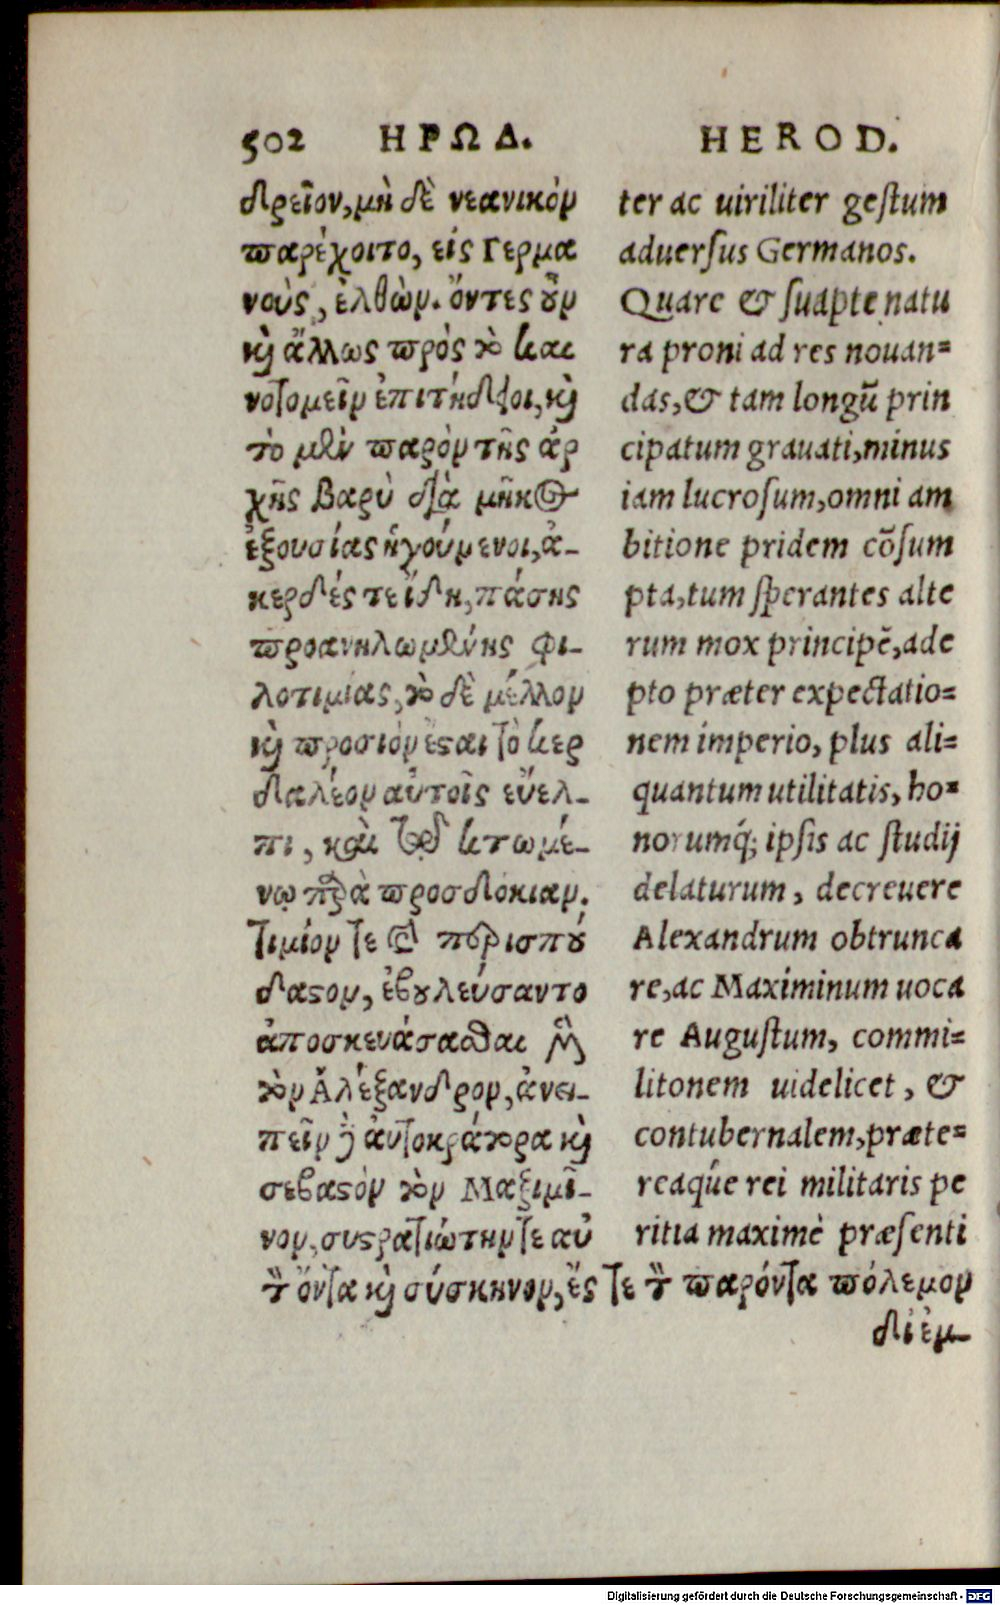 502 ΗΡΩΔ.
δρεῖον, μὴ δὲ νεανικὸν
παρέχοιτο, εἰς Γερμα
νοὺς, ἐλθὼν. ὄντες ȣ̓ν
κỳ ἄλλως πρὸς τὸ και
νοτομεῖν ἐπιτήδειοι, κỳ
τὸ μὲν παρὸν τῆς ἀρ
χῆς βαρὺ διὰ μῆκος
ἐξουσίας ἡγούμενοι, ἀ-
κερδές τε ἤδη, πάσης
προανηλωμένης φι-
λοτιμίας, τὸ δὲ μέλλον
κỳ προσιὸν ἔς αι τὸ κερ
δαλέον αὐτοῖς εὔελ-
πι, καὶ τῷ κτωμέ-
νῳ παρὰ προσδόκιαν.
τιμίον τε καὶ περισπȣ́
δαςον, ἐβȣλεύσαντο
ἀποσκευάσασθαι μὲν
τὸν Ἀλέξανδρον, ἀνει-
πεῖν δὲ ἀυτοκράτορα κỳ
σεβαςὸν τὸν Μαξιμῖ-
νον, συςρατιώτην τε αὐ
τῶν ὄντα κỳ σύσκηνον, ἔς τε τὸν παρόντα πόλεμον
δἰ ἐμ-
HEROD.
ter ac uiriliter geſtum
aduerſus Germanos.
Quare & ſuapte natu
ra proni ad res nouan=
das, & tam longũ prin
cipatum grauati, minus
iam lucroſum, omni am
bitione pridem cõſum
pta, tum ſperantes alte
rum mox principẽ, ade
pto præter expectatio=
nem imperio, plus ali=
quantum utilitatis, ho=
norumq́; ipſis ac ſtudij
delaturum, decreuere
Alexandrum obtrunca
re, ac Maximinum uoca
re Auguſtum, commi=
litonem uidelicet, &
contubernalem, præte=
reaq́ue rei militaris pe
ritia maximè præſenti
Digitalisierung gefördert durch die Deutsche Forschungsgemeinschaft - DFG